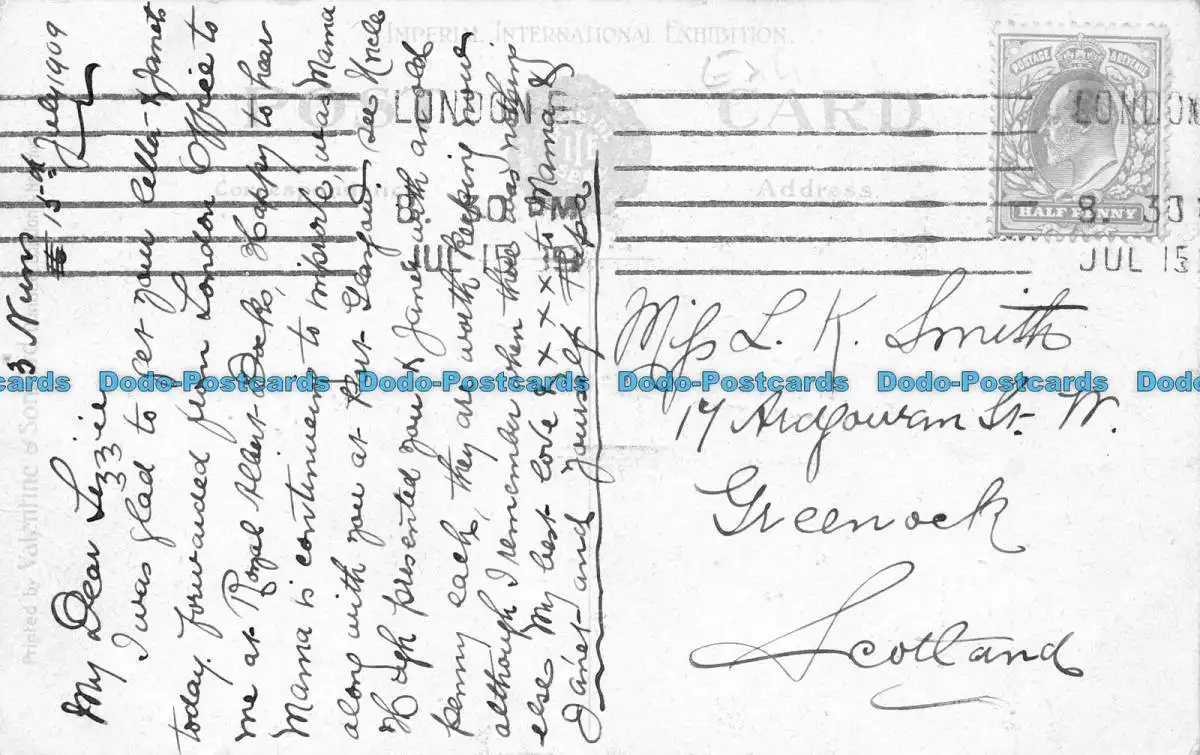 IMPERIAL INTERNATIONAL EXHIBITION.
POST CARD
Address
POSTAGE & REVENUE
HALF PENNY
LONDON
8 30 PM
JUL 15
LONDON
8. 30
JUL 15
Printed by Valentine & Sons
15th July 1909
My Dear Lizzie
I was glad to get your Cella & Janet's
today. forwarded from London Office to
me at Royal Albert Docks, Happy to hear
Mama is continueing to improve, was Mama
along with you at Port Glasgow see Uncle
Hugh presented you & Janet with an old
penny each, they are worth keeping now
although I remember when there was nothing
else My best love & x x x x to Mama &
Janet and yourself Papa
Miss L. K. Smith
17 Ardgowan St. W.
Greenock
Scotland
Dodo-Postcards Dodo-Postcards Dodo-Postcards Dodo-Postcards